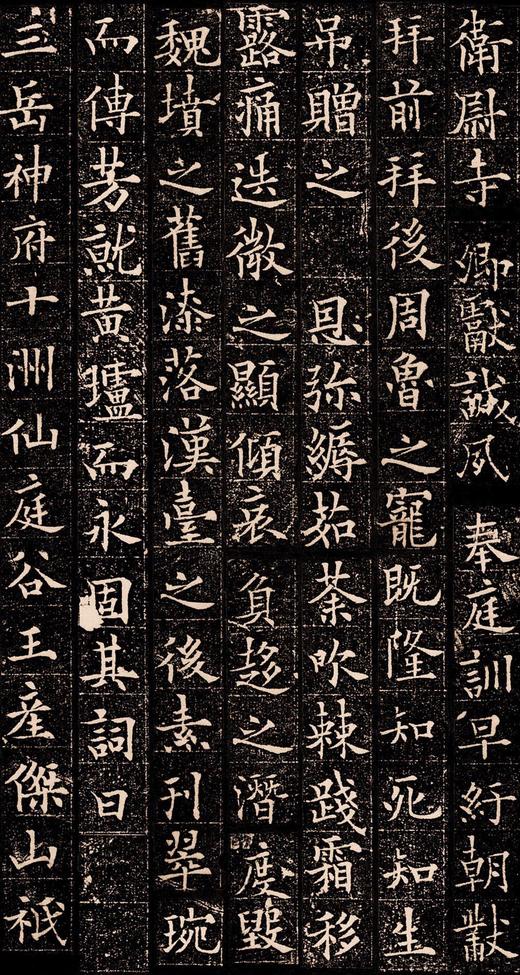 衛尉寺卿獻誠夙奉庭訓早紆朝黻
拜前拜後周魯之寵既隆知死知生
吊贈之恩弥縟茹荼吹棘踐霜移
露痛迭微之顯傾哀負趍之潛度毀
魏墳之舊漆落漢臺之後素刊翠琬
而傳芳就黃壚而永固其詞曰
三岳神府十洲仙庭谷王産傑山祇